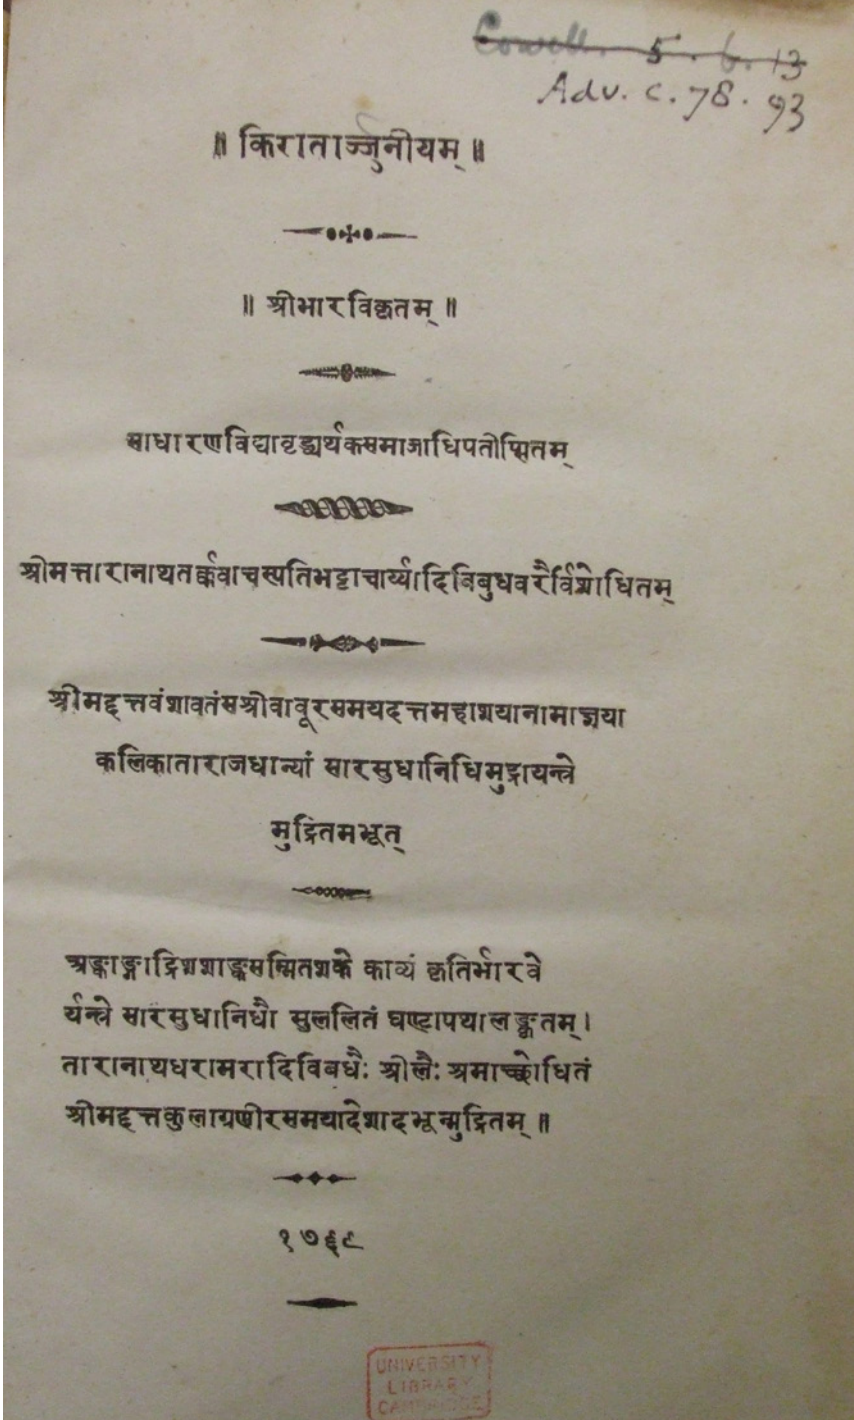 Cowell. 5. 6. 13
Adv. c. 78. 93
॥ किरातार्ज्जुनीयम् ॥
॥ श्रीभारविकृतम् ॥
साधारणविद्यावृद्ध्यर्थकसमाजाधिपतीप्सितम्
श्रीमत्तारानाथतर्क्कवाचस्पतिभट्टाचार्य्यादिविबुधवरैर्विशोधितम्
श्रीमद्दत्तवंशावतंसश्रीवावूरसमयदत्तमहाशयानामाज्ञया
कलिकाताराजधान्यां सारसुधानिधिमुद्रायन्त्रे
मुद्रितमभूत्
अङ्काङ्गाद्रिशशाङ्कसम्मितशके काव्यं कृतिर्भारवे
र्यन्त्रे सारसुधानिधौ सुललितं घण्टापथालङ्कृतम्।
तारानाथधरामरादिविबधैः श्रीलैः श्रमाच्छोधितं
श्रीमद्दत्तकुलाग्रणीरसमयादेशादभून्मुद्रितम् ॥
१७६९
UNIVERSITY
LIBRARY
CAMBRIDGE